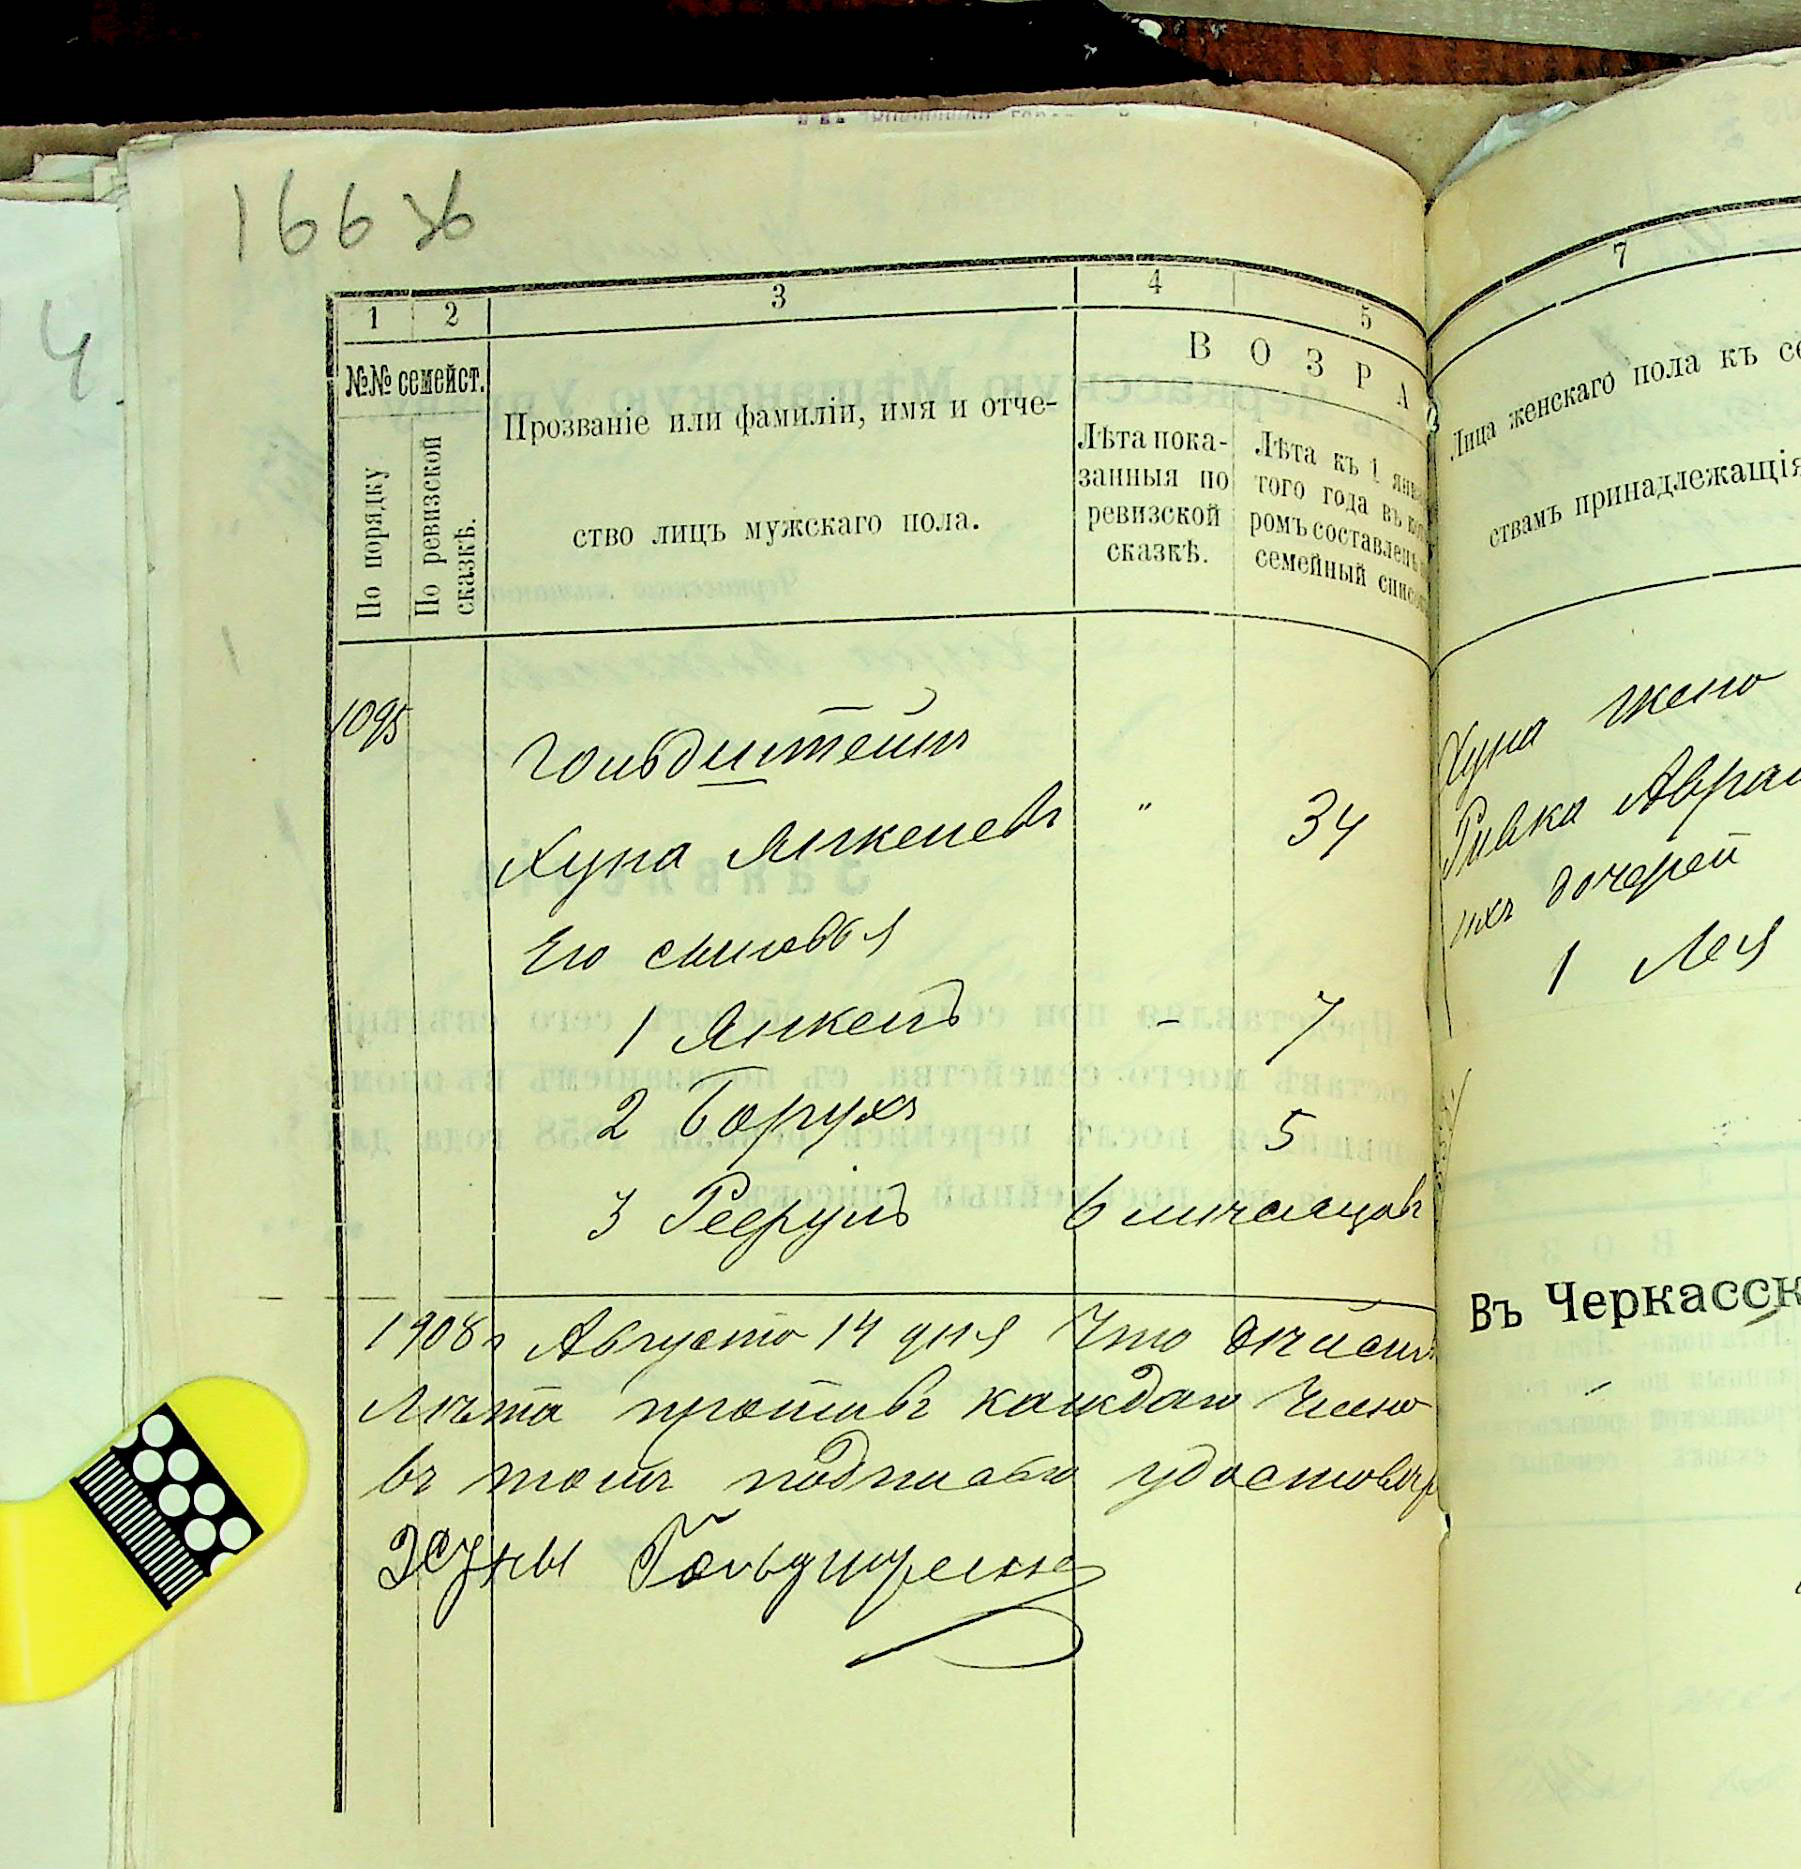 166 зв
1 2 3 4 5
№№ семейст.
По порядку
По ревизской
сказкѣ.
Прозваніе или фамиліи, имя и отче-
ство лицъ мужскаго пола.
В О З Р А
Лѣта пока-
занныя по
ревизской
сказкѣ.
Лѣта къ 1
того года въ
ромъ составленъ
семейный
1095
Гольдштейнъ
Хуна Янкелевъ " 34
Его сыновья
1 Янкель - 7
2 Борухъ 5
3 6 мѣсяцовъ
1908 г Августа 14 дня Что
лѣта противъ каждаго члена
въ томъ подписью
Хуны Гольдштейна
7
Лица женскаго пола къ
ствамъ принадлежащія
Хуна жена
Ривка
ихъ дочерей
1 Лея
Въ